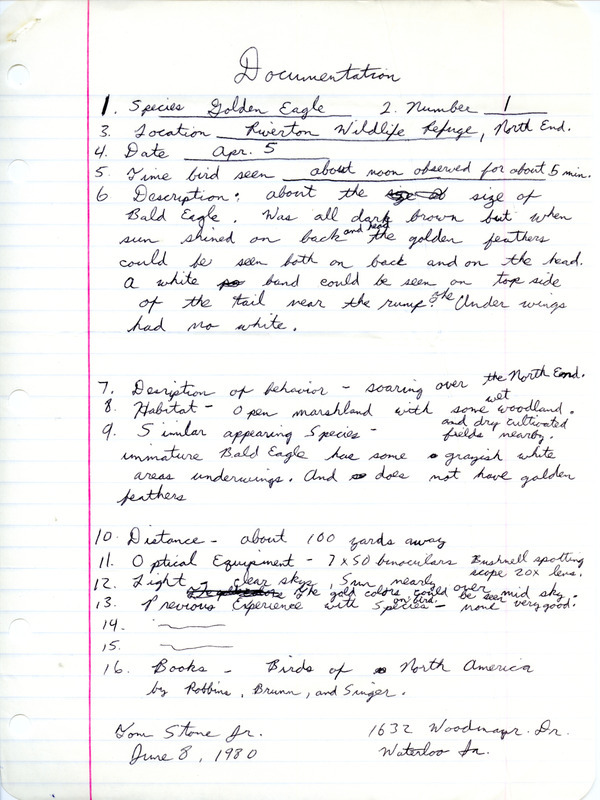 Documentation
1. Species Golden Eagle 2. Number 1
3. Location Riverton Wildlife Refuge, North End.
4. Date Apr. 5
5. Time bird seen about noon observed for about 5 min.
6 Description: about the size of
Bald Eagle. Was all dark brown but when
sun shined on back and head the golden feathers
could be seen both on back and on the head.
A white band could be seen on top side
of the tail near the rump. The Under wings
had no white.
7. Desription of behavior - soaring over the North End.
8. Habitat - Open marshland with some wet woodland.
and dry cultivated
9. Similar appearing Species - fields nearby.
immature Bald Eagle has some grayish white
areas underwings. And does not have golden
feathers
10. Distance - about 100 yards away
11. Optical Equipment - 7x50 binoculars Bushnell spotting
scope 20x lens.
12. Light - clear sky, Sun nearly over mid sky.
The gold colors could be seen on bird.
13. Previous Experience with Species - none very good.
14.
15.
16. Books - Birds of North America
by Robbins, Brunn, and Singer.
Tom Stone Jr. 1632 Woodmayr Dr.
June 8, 1980 Waterloo Ia.